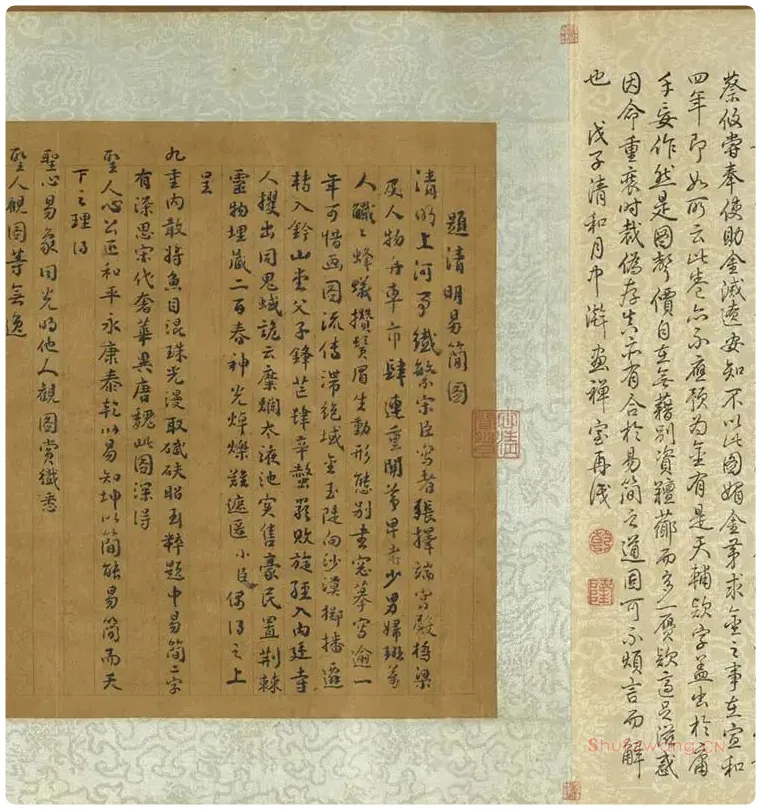 蔡攸嘗奉使助金滅遼安知不以此圖媚金第求金之事在宣和
四年即如所云此卷亦不應預為金有是天輔欵字益出於庸
手妄作然是圖聲價自在無藉别資薌而多一贗欵適足滋惑
因命重裝時裁偽存真亦有合於易簡之道固可不煩言而解
也 戊子清和月中澣畫禪室再識
題清明易簡圖
清明上河纖繁宗臣寫者張擇端宫殿橋梁
及人物舟車市肆連重關第早老少男婦班萬
人蜂蟻攢鬚眉生動形態别畫完摹寫逾一
年可惜画圖流傳滯絶域金玉陡向沙漠擲播遷
轉入鈐山堂父子鋒芒肆辛螫罪敗旋經入内廷寺
人攫出同鬼蜮詭云糜爛太液池實售豪民置荆棘
靈物埋藏二百春神光焯爍難遮匿小臣偶得之上
呈
九重内敢将魚目混珠光漫取碔砆昭玉粹題中易簡二字
有深思宋代奢華異唐魏此圖深得
聖人心公正和平永康泰乾以易知坤以簡能易簡而天
下之理得
聖心易象同光明他人觀圖賞纖悉
聖人觀圖等無逸